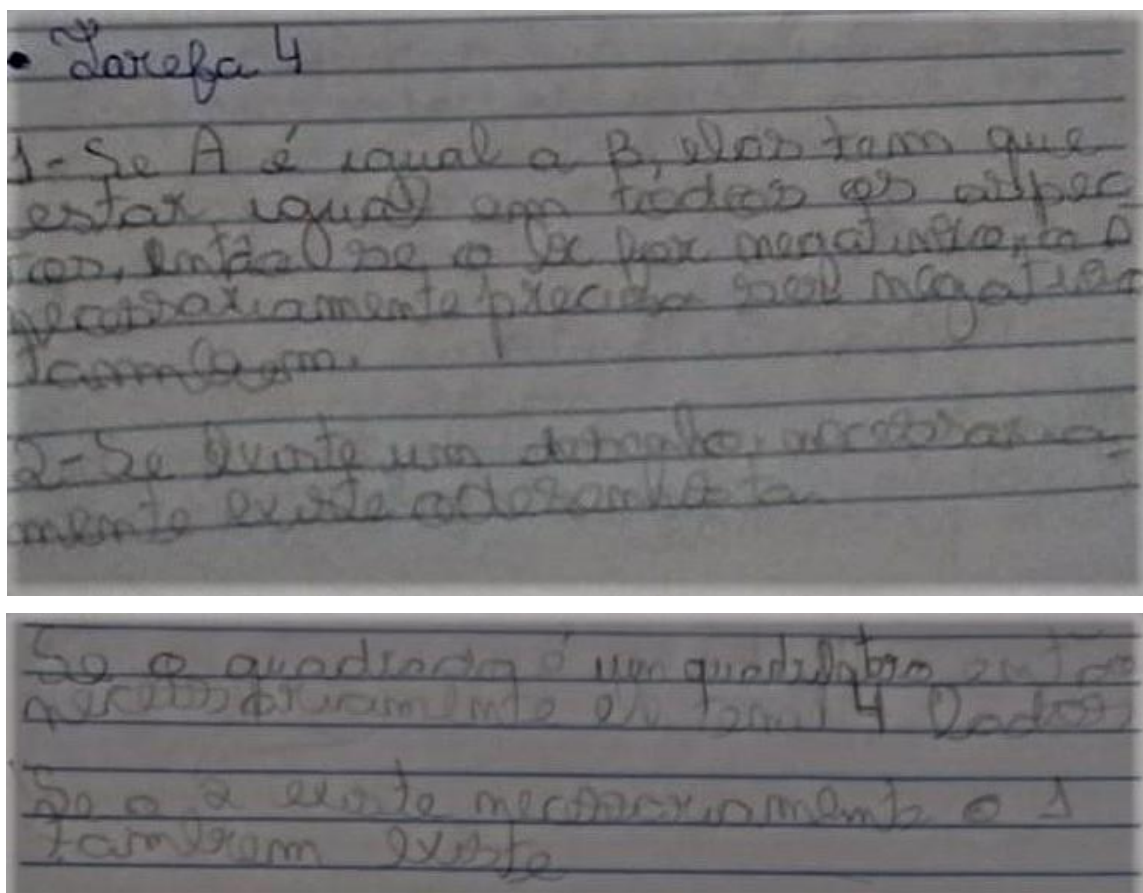 • Tarefa 4
1- Se A é igual a B, elas tem que
estar igual em todos os aspec
tos, então se o B for negativo, o A
necessariamente precisa ser negativo
também.
2- Se existe um detalhe, necessaria-
mente existe
Se o quadrado é um quadrilatero então
necessariamente ele tem 4 lados
Se o 2 existe necessariamente o 1
tambem existe